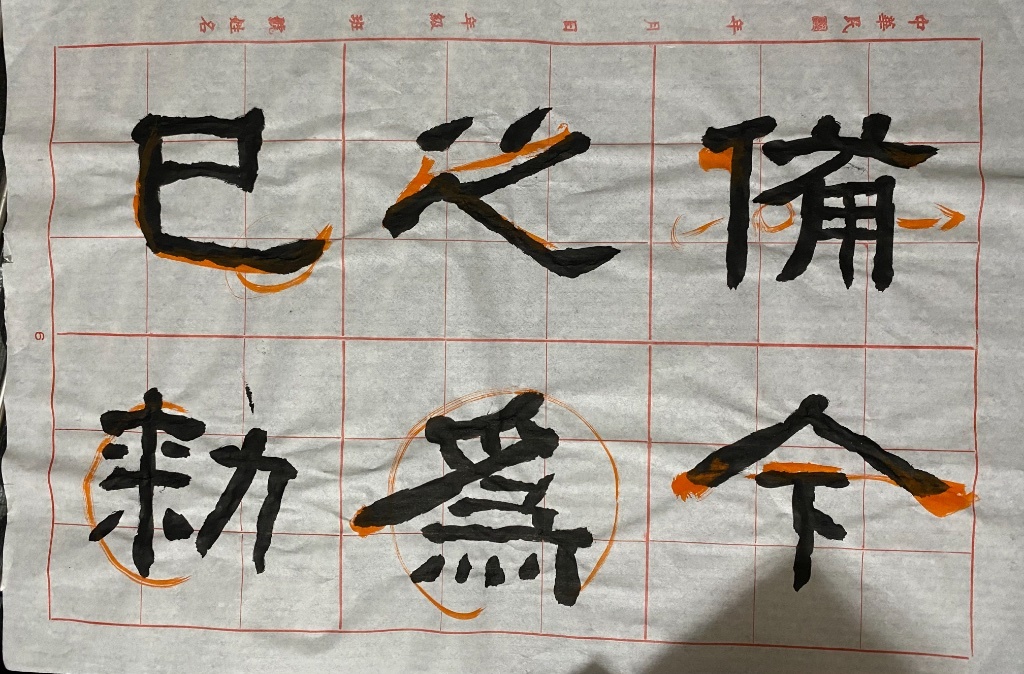 中華民國 年 月 日 年級 班 號 姓名
備令
之為
已勑
6